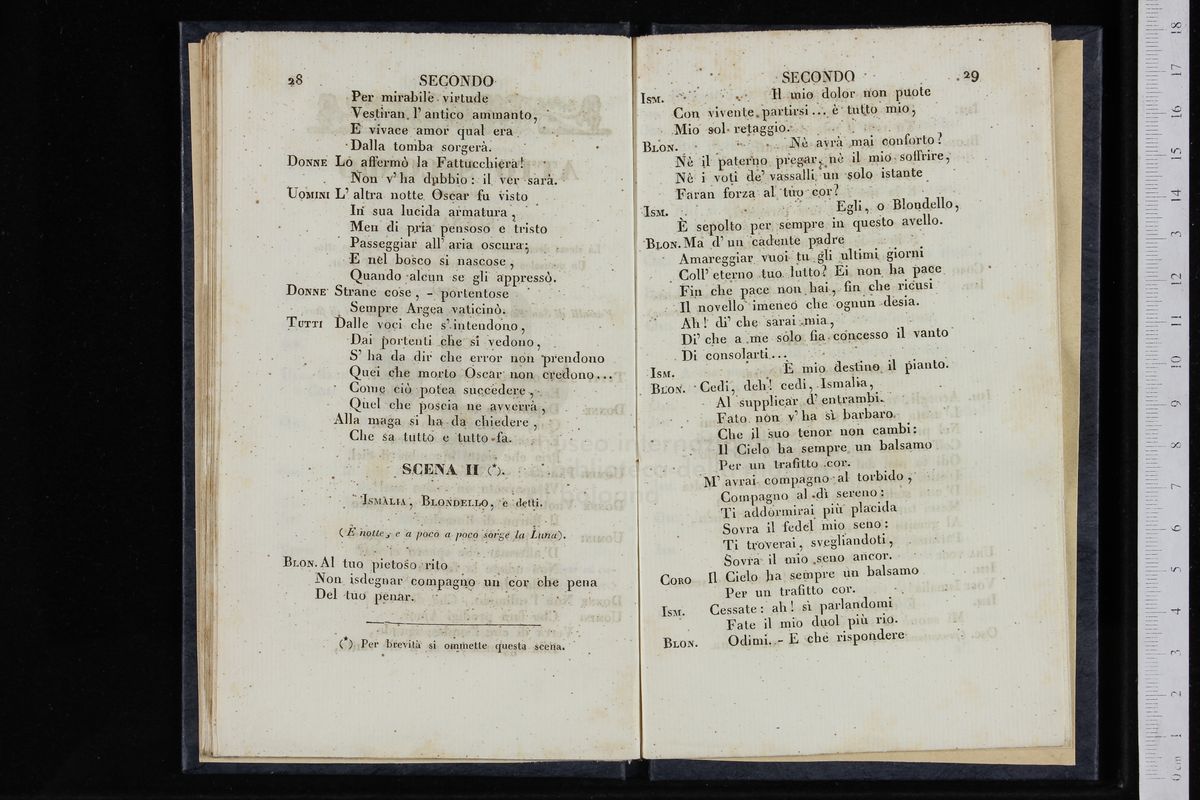 28 SECONDO
Per mirabile virtude
Vestiran l' antico ammanto,
E vivace amor qual era
Dalla tomba sorgerà.
DONNE Lo affermò la Fattucchiera!
Non v' ha dubbio: il ver sarà.
UOMINI L' altra notte Oscar fu visto
In sua lucida armatura,
Men di pria pensoso e tristo
Passeggiar all' aria oscura;
E nel bosco si nascose,
Quando alcun se gli appressò.
DONNE Strane cose, - portentose
Sempre Argea vaticinò.
TUTTI Dalle voci che s' intendono,
Dai portenti che si vedono,
S' ha da dir che error non prendono
Quei che morto Oscar non credono...
Come ciò potea succedere,
Quel che poscia ne avverrà,
Alla maga si ha da chiedere,
Che sa tutto e tutto fa.
SCENA II (*).
ISMALIA, BLONDELLO, e detti.
(È notte, e a poco a poco sorge la Luna).
BLON. Al tuo pietoso rito
Non isdegnar compagno un cor che pena
Del tuo penar.
(*) Per brevità si ommette questa scena.
SECONDO 29
ISM. Il mio dolor non puote
Con vivente partirsi... è tutto mio,
Mio sol retaggio.
BLON. Nè avrà mai conforto?
Nè il paterno pregar, nè il mio soffrire,
Nè i voti de' vassalli un solo istante
Faran forza al tuo cor?
ISM. Egli, o Blondello,
È sepolto per sempre in questo avello.
BLON. Ma d' un cadente padre
Amareggiar vuoi tu gli ultimi giorni
Coll' eterno tuo lutto? Ei non ha pace
Fin che pace non hai, fin che ricusi
Il novello imeneo che ognun desia.
Ah! di' che sarai mia,
Di' che a me solo fia concesso il vanto
Di consolarti...
ISM. È mio destino il pianto.
BLON. Cedi, deh! cedi, Ismalia,
Al supplicar d' entrambi.
Fato non v' ha sì barbaro
Che il suo tenor non cambi:
Il Cielo ha sempre un balsamo
Per un trafitto cor.
M' avrai compagno al torbido,
Compagno al dì sereno:
Ti addormirai più placida
Sovra il fedel mio seno:
Ti troverai, svegliandoti,
Sovra il mio seno ancor.
CORO Il Cielo ha sempre un balsamo
Per un trafitto cor.
ISM. Cessate: ah! sì parlandomi
Fate il mio duol più rio.
BLON. Odimi. - E che rispondere